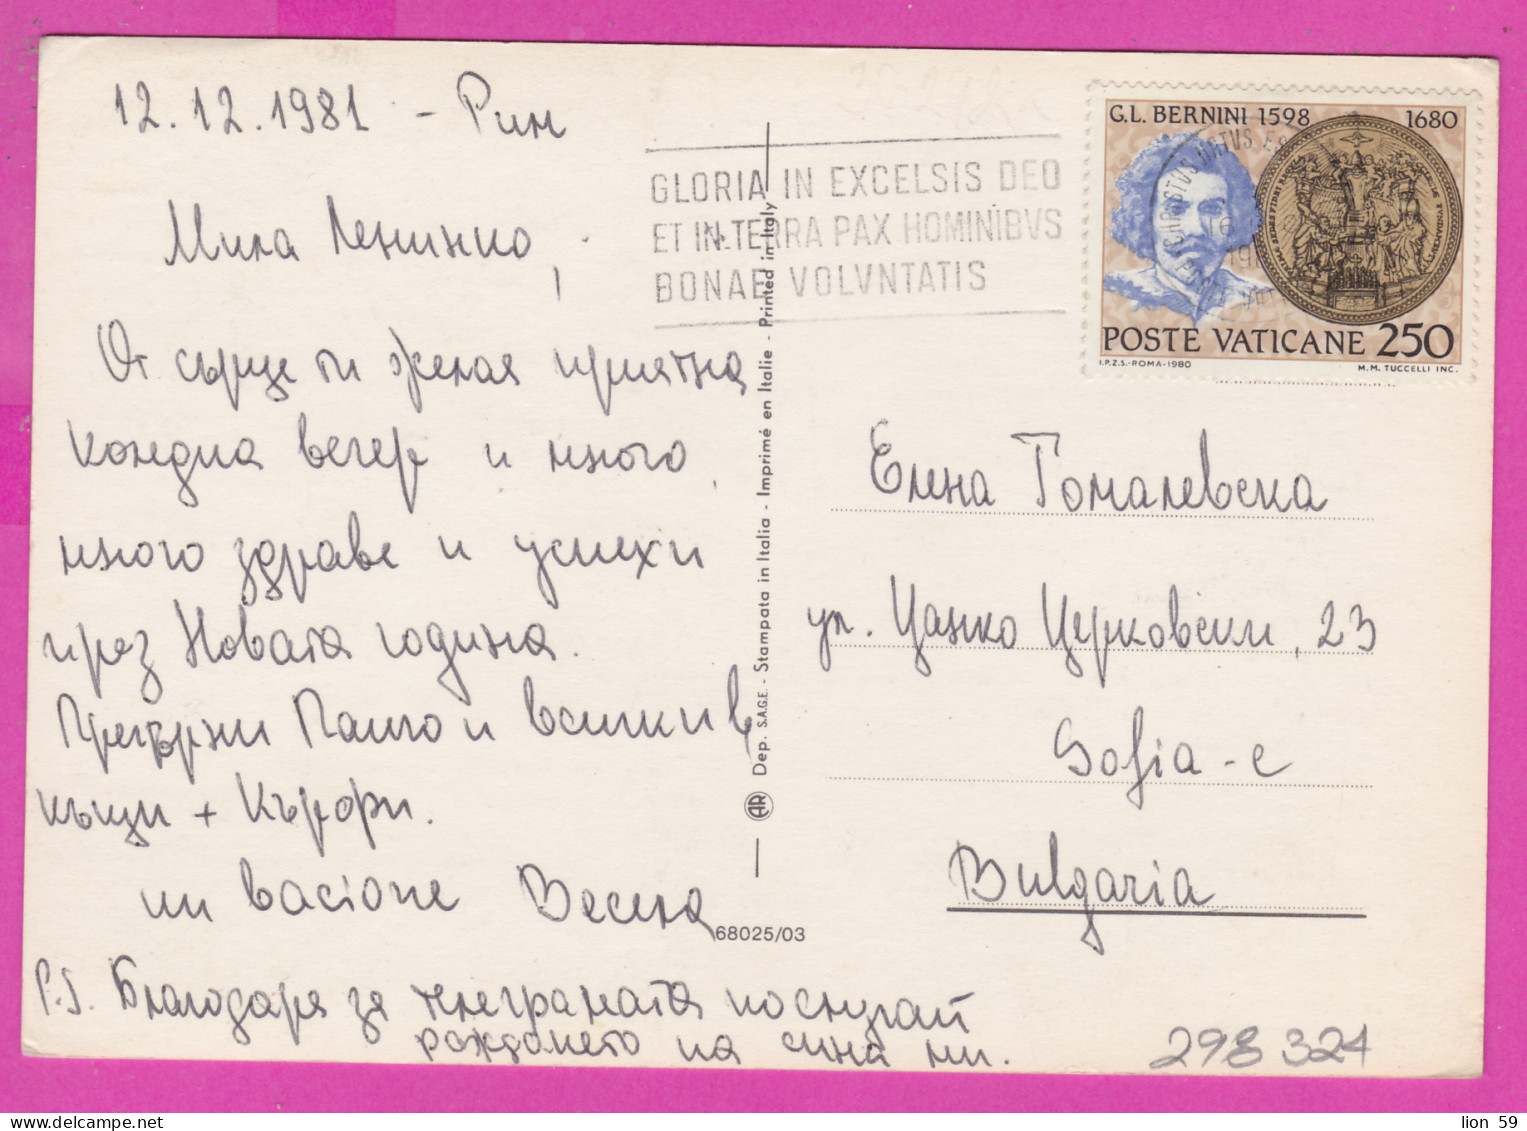 12.12.1981 - Рим
Мила Ленинко,
От сърце ти желая приятна
коледна вечер и много,
много здраве и успехи
през Новата година.
Прегърни Панчо и всички в
къщи +
Весела
P.S. Благодаря за телеграмата по случай
раждането на сина ми.
GLORIA IN EXCELSIS DEO
ET IN TERRA PAX HOMINIBVS
BONAE VOLVNTATIS
G.L. BERNINI 1598 1680
POSTE VATICANE 250
I.P.Z.S.-ROMA-1980 M.M. TUCCELLI INC.
Dep. S.A.G.E. - Stampata in Italia - Imprimé en Italie - Printed in Italy
AR
68025/03
Елена Гомалевска
ул. Цанко Церковски, 23
Sofia - c
Bulgaria
298 324
lion 59